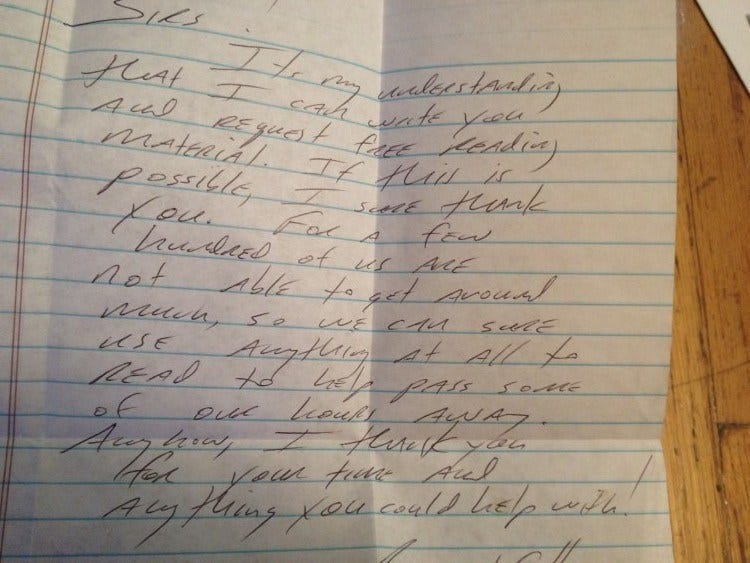 Sirs!
Its my understanding
that I can write you
and request free reading
material. If this is
possible, I sure thank
you. For a few
hundred of us are
not able to get around
much, so we can sure
use anything at all to
read to help pass some
of our hours away.
Anyhow, I thank you
for your time and
anything you could help with!